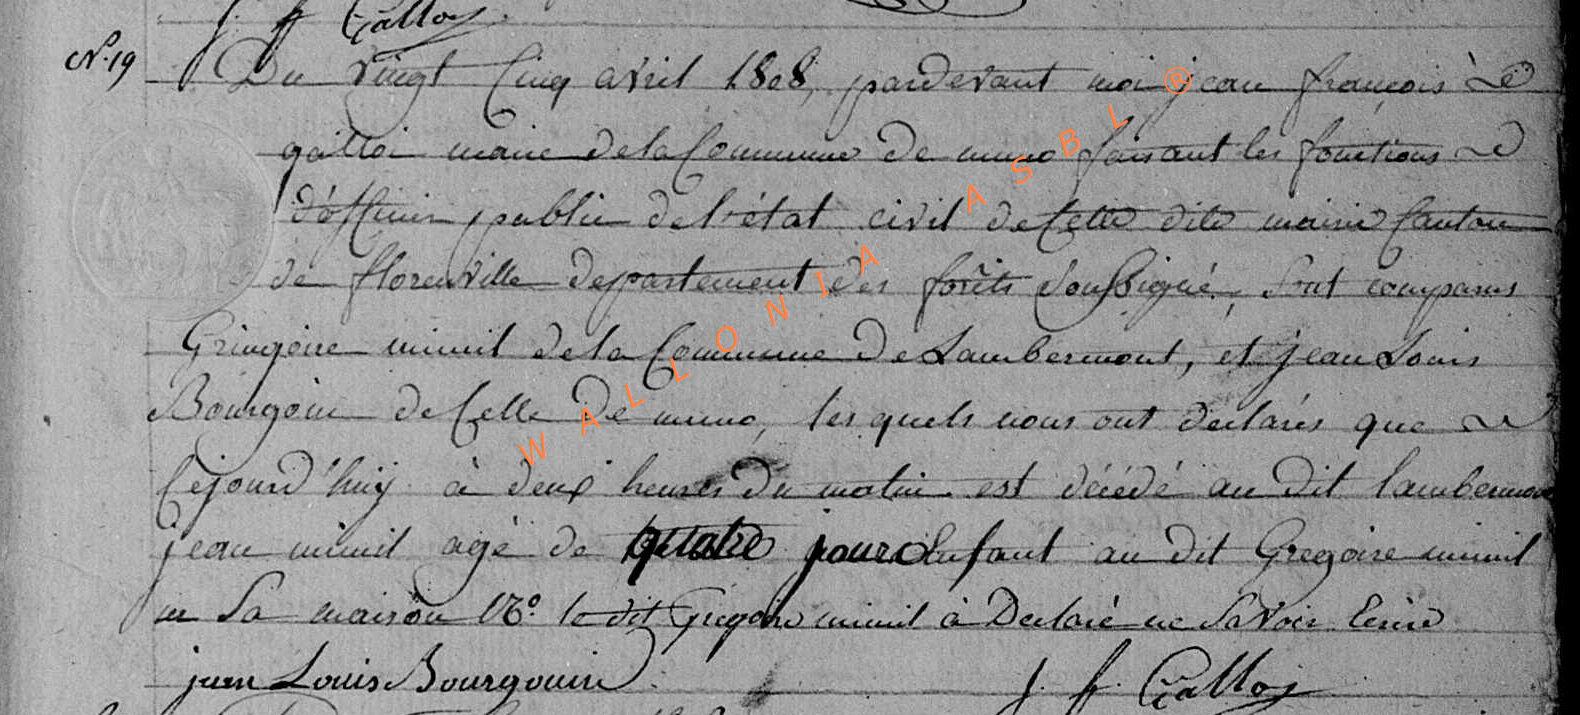 J. f. Galloy
N.° 19
Du vingt Cinq avril 1808, pardevant moi jean françois
galloi maire dela Commune de muno faisant les fonctions
d'officier public del'état civil de Cette dite mairie Canton
de florenville departement des forêts sousigné, Sont comparus
Gringoire minil dela Commune De Lambermont, et jean Louis
Bourgoin de Celle De muno, les quels nous ont declarés que
Cejourd'huÿ à deux heures Du matin est décédé au Dit lambermont
jean minil agé de quatre jour Enfant au dit Gregoire minil
en Sa maison le dit Gregoire minil à Declaré ne Savoir Ecrire
jean Louis Bourgouin
J. f. Galloy
WALLONIA ASBL ®